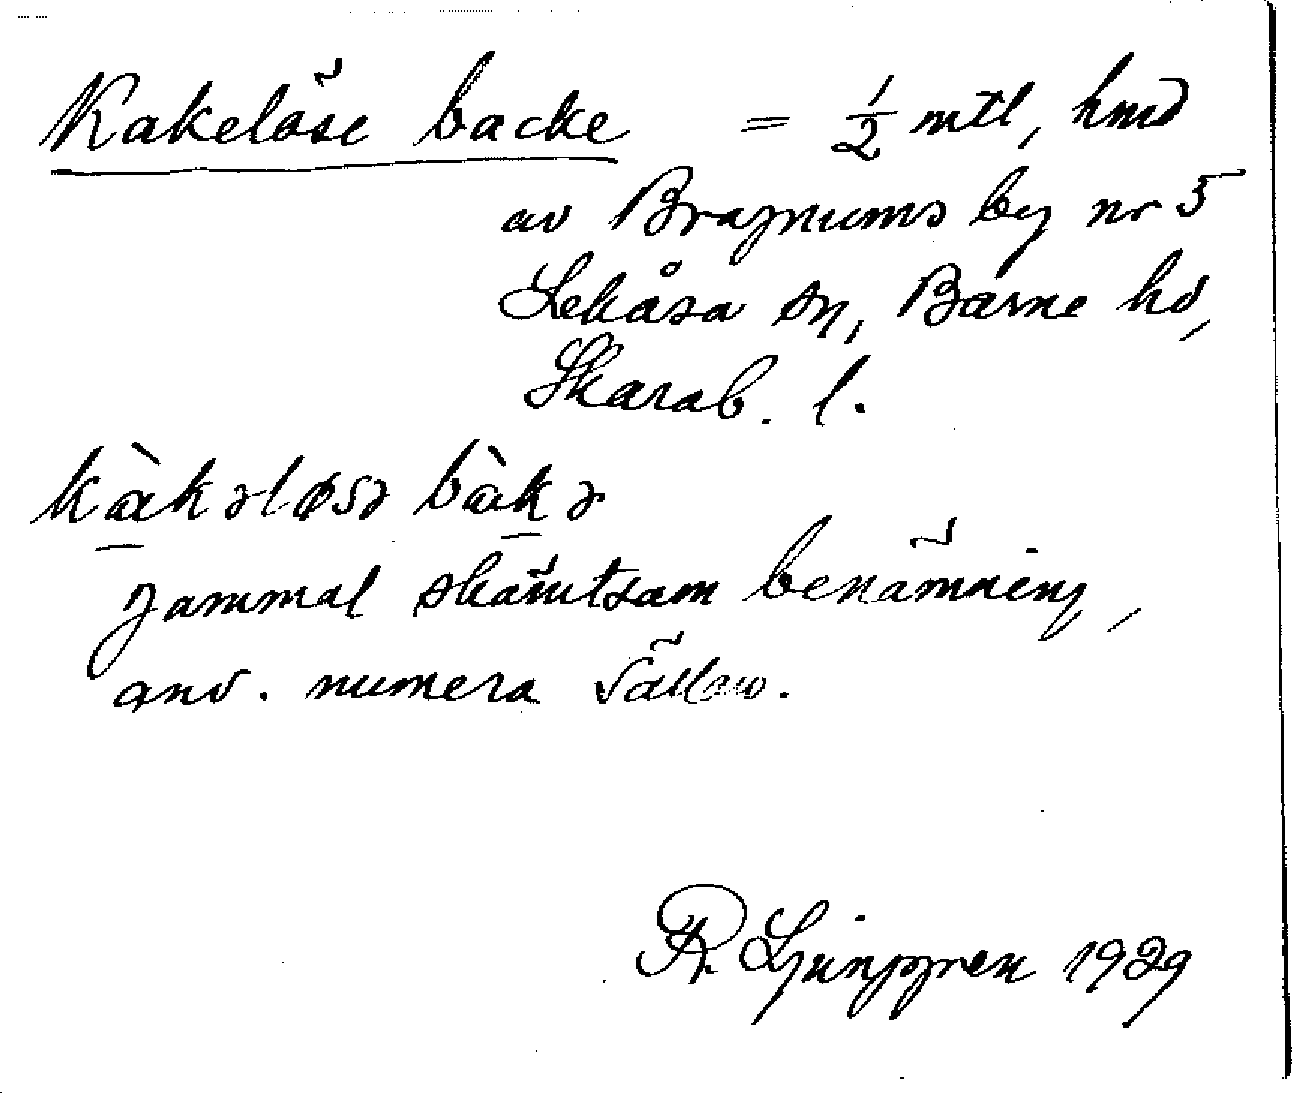 Kakelöse backe = 1/2 mtl, hmd
av Bragnums by nr 5
Lekåsa sn, Barne hd,
Skarab. l.
kàkəløsə bàkə
gammal skämtsam benämning,
anv. numera sällan.
R. Ljunggren 1929